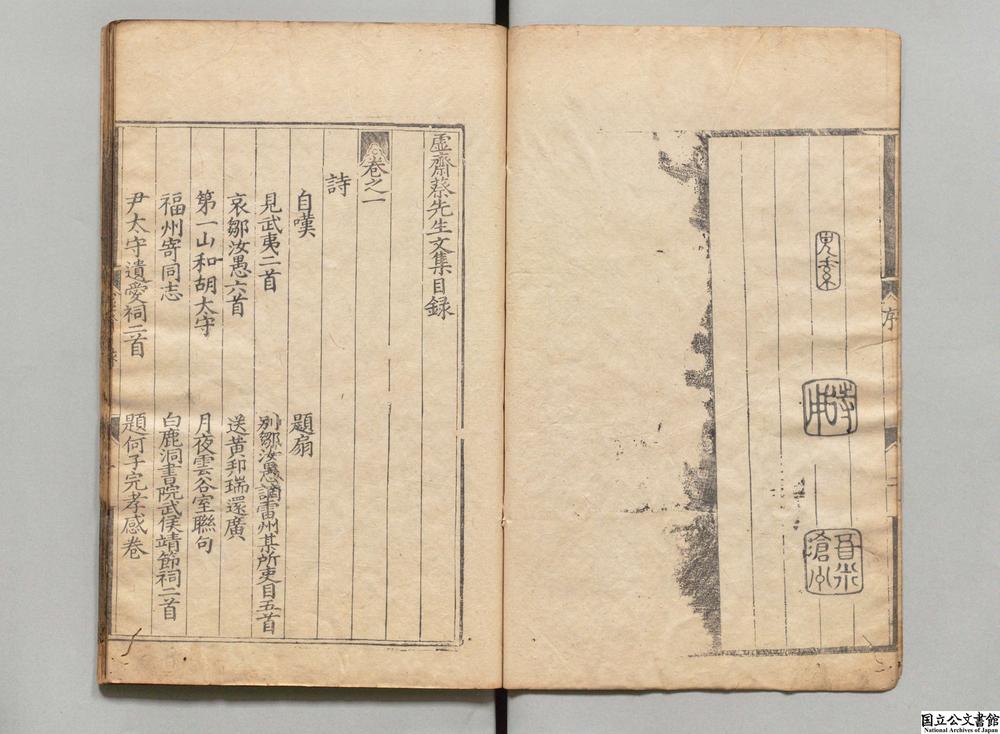 序
虛齋蔡先生文集目錄
卷之一
詩
自嘆
題扇
見武夷二首
別鄒汝愚謫雷州某所吏目五首
哀鄒汝愚六首
送黃邦瑞還廣
第一山和胡太守
月夜雲谷室聯句
福州寄同志
白鹿洞書院武侯靖節祠二首
尹太守遺愛祠二首
題何子完孝感卷
国立公文書館
National Archives of Japan